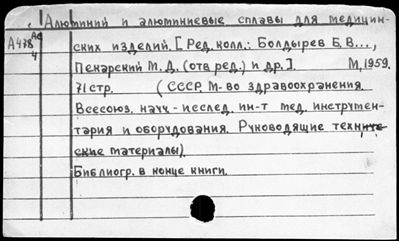 Алюминий и алюминиевые сплавы для медицин-
А478 Ас ских изделий. [Ред. колл.: Болдырев Б.В...,
4 Пекарский М.Д. (отв. ред.) и др.]. М, 1959.
71 стр. (СССР. М-во здравоохранения.
Всесоюз. научн-исслед. ин-т мед. инструмен-
тария и оборудования. Руководящие техниче-
ские материалы)
Библиогр. в конце книги.